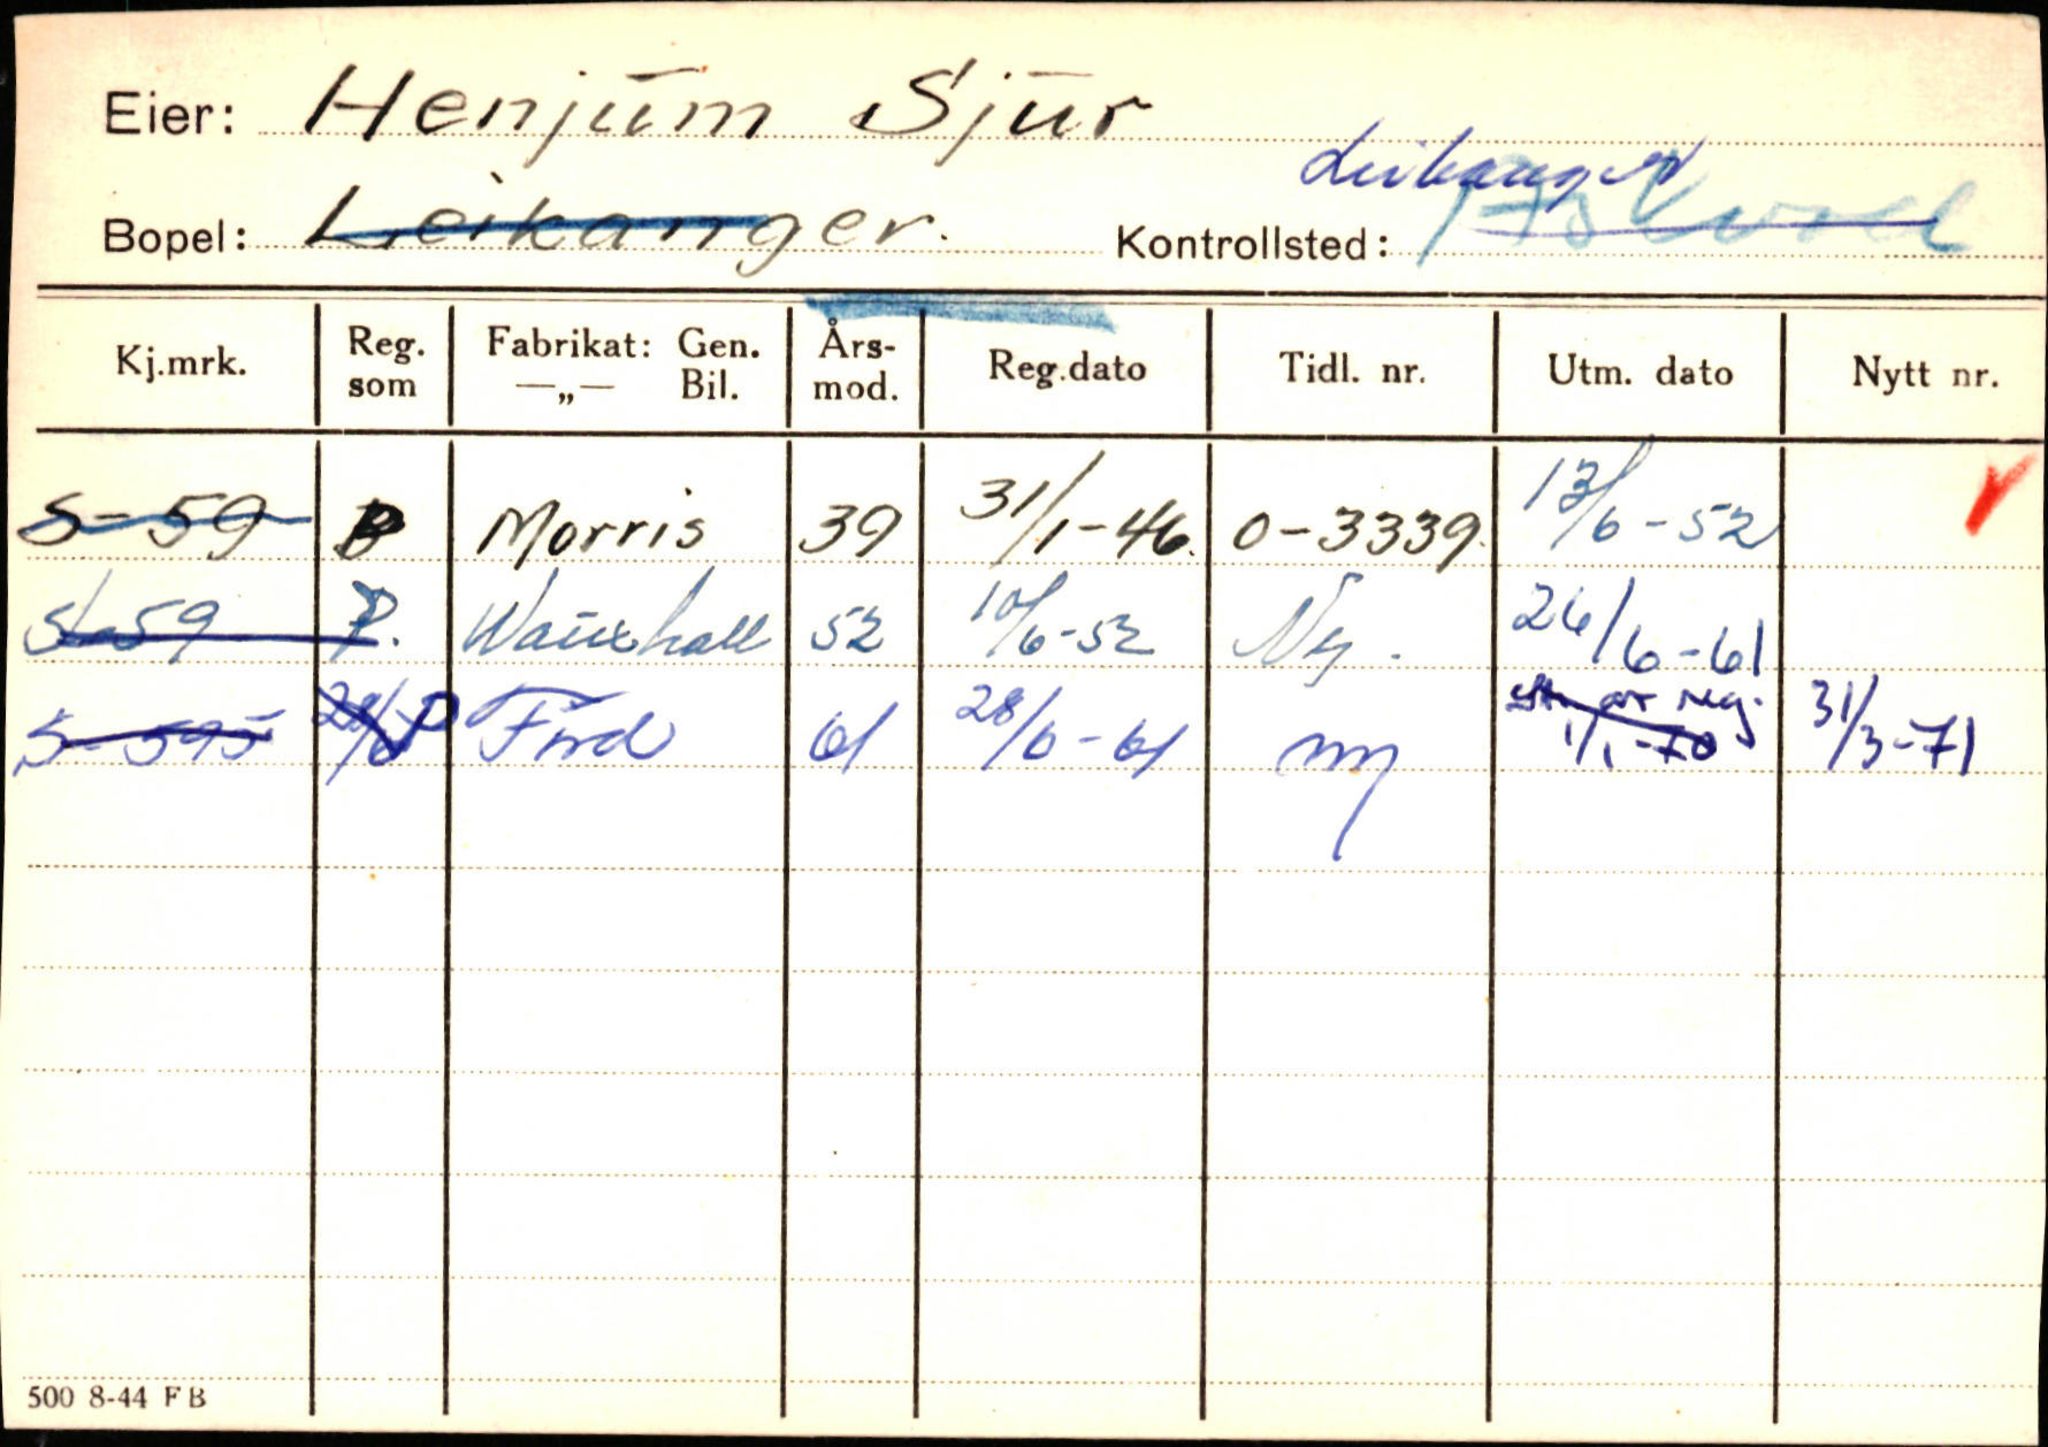 Eier: Henjum Sjur
Leikanger
Bopel: Leikanger. Kontrollsted: Askvoll
Kj.mrk. Reg. som Fabrikat: Gen. —„— Bil. Års-mod. Reg.dato Tidl. nr. Utm. dato Nytt nr.
S-59 Morris 39 31/1-46. O-3339. 13/6-52
S-59 P. Wauxhall 52 10/6-52 Ny. 26/6-61
S-595 28/6 P Ford 61 28/6-61 ny av reg. 1/1-70 31/3-71
500 8-44 FB